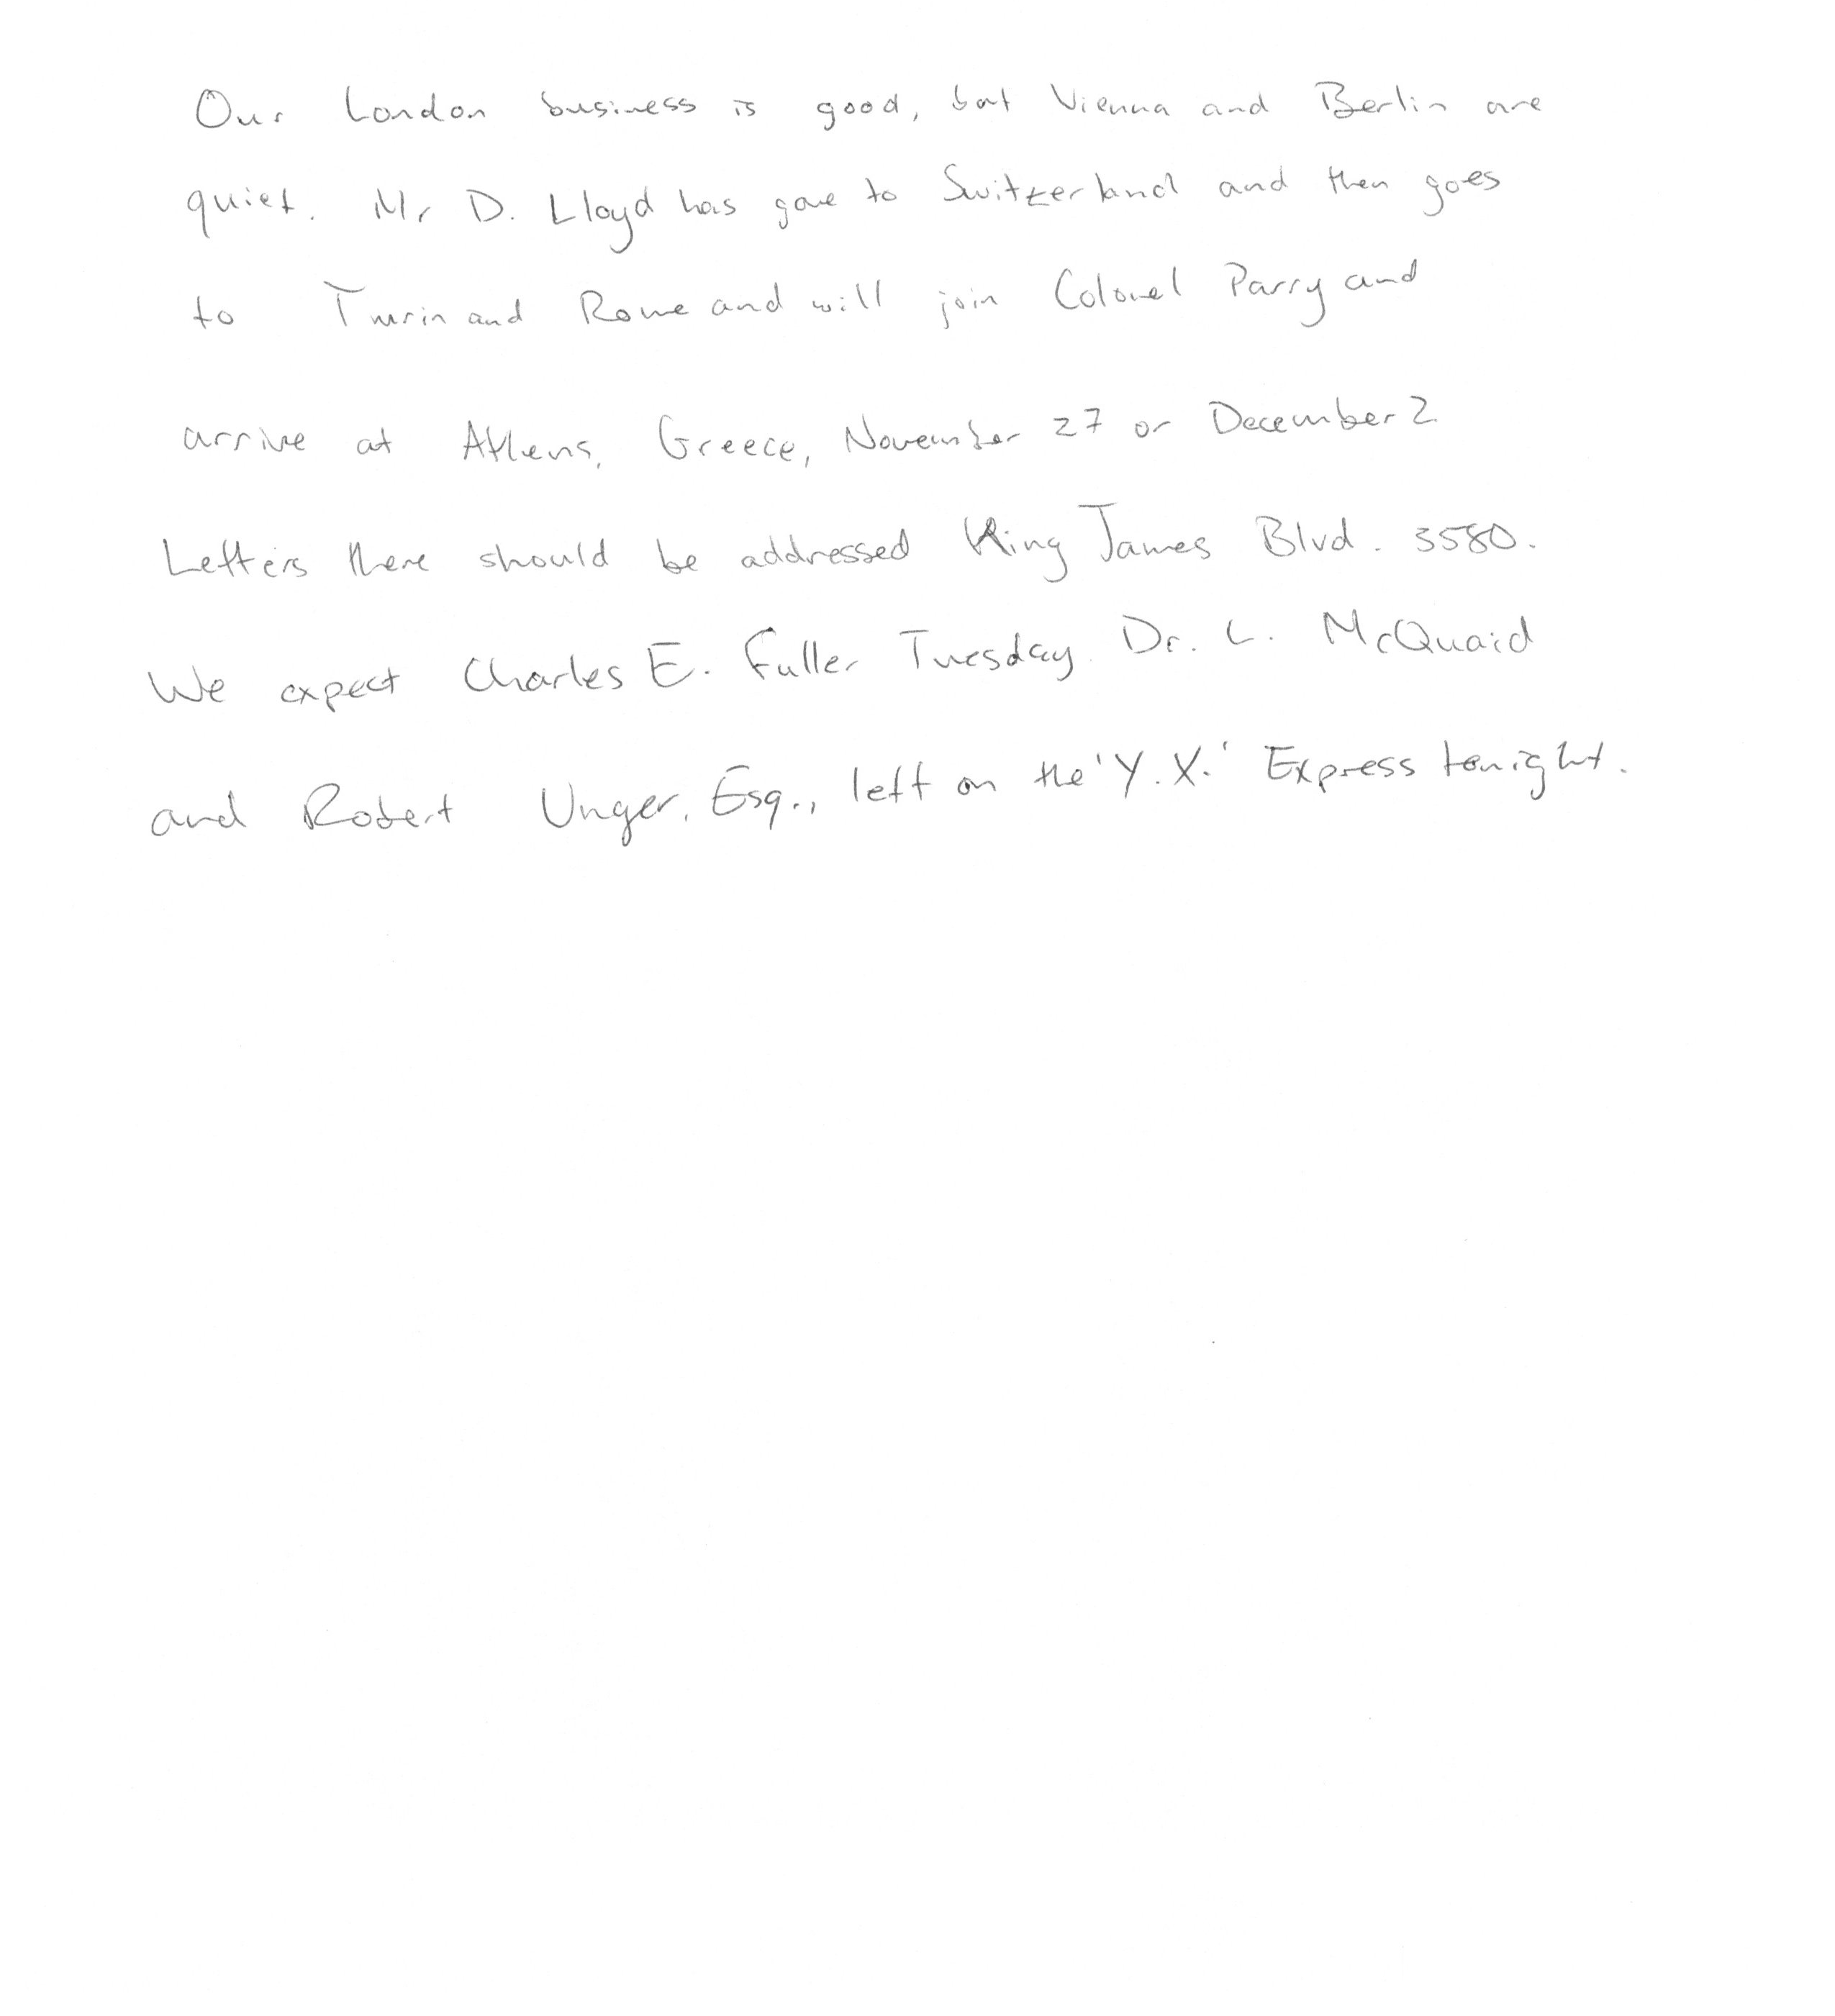 Our London business is good, but Vienna and Berlin are
quiet. Mr D. Lloyd has gone to Switzerland and then goes
to Turin and Rome and will join Colonel Parry and
arrive at Athens, Greece, November 27 or December 2.
Letters there should be addressed King James Blvd. 3580.
We expect Charles E. Fuller Tuesday. Dr. L. McQuaid
and Robert Unger, Esq., left on the 'Y.X.' Express tonight.